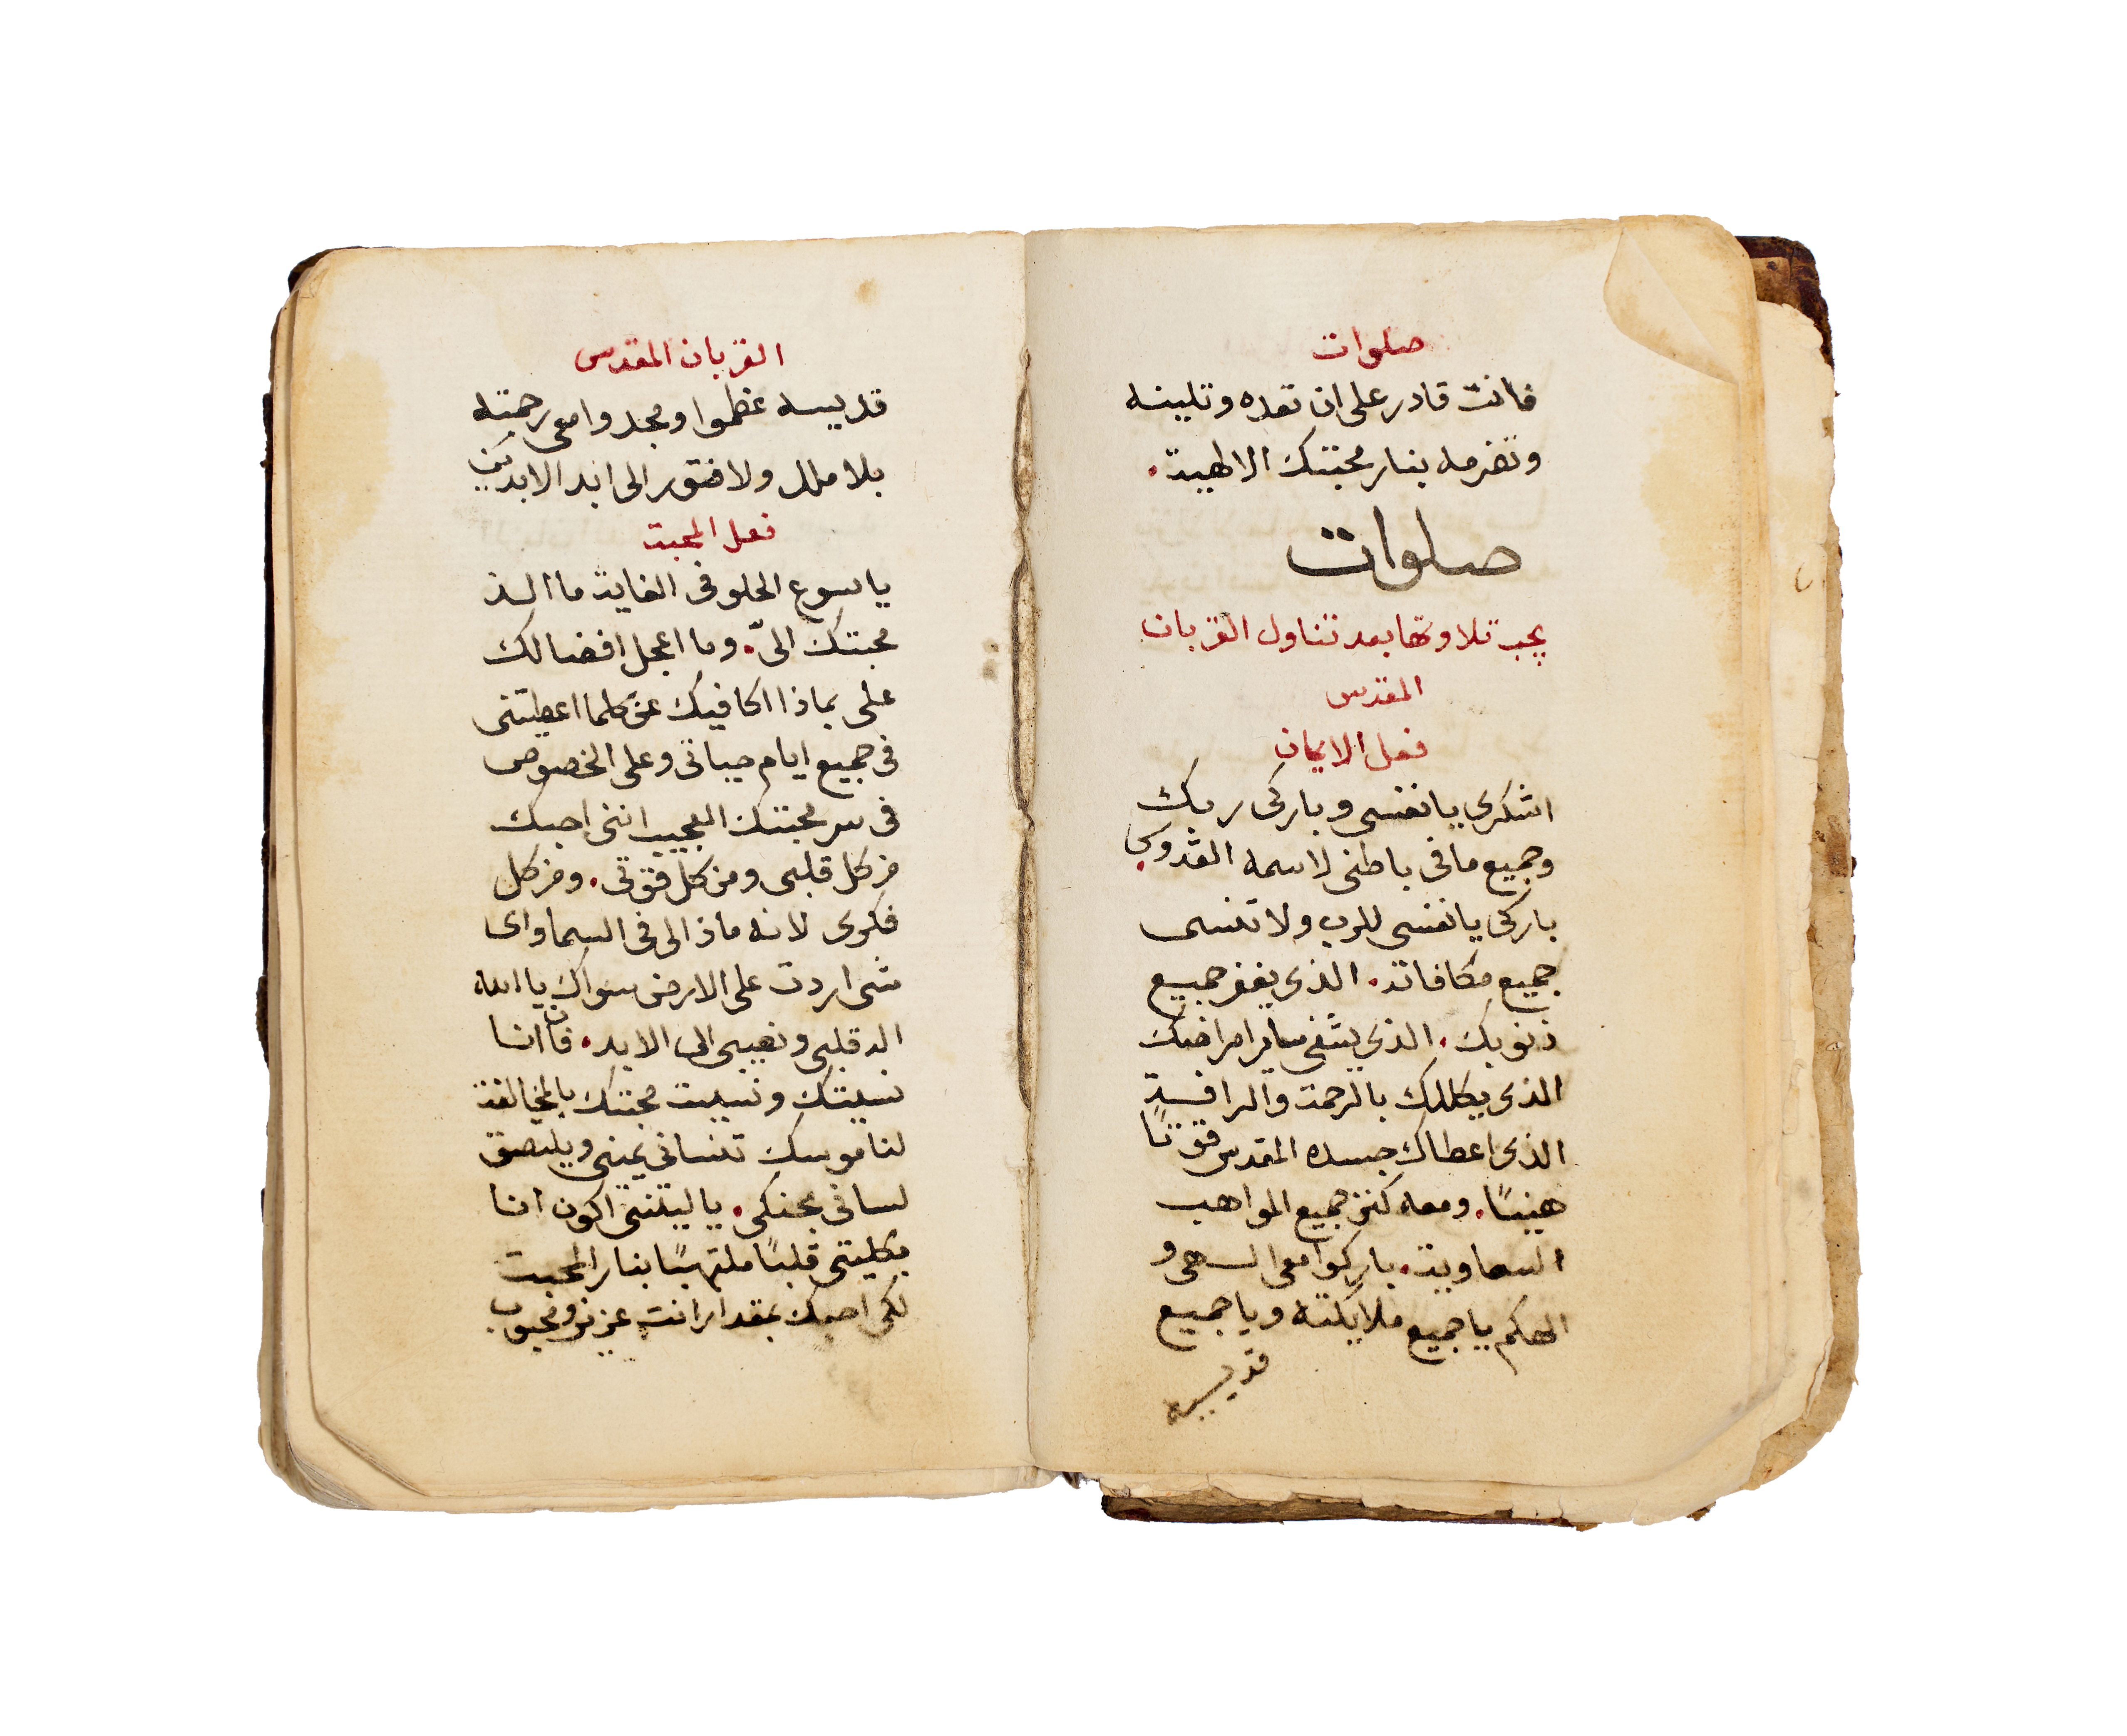 صلوات
فانت قادر على ان تعده وتلينه
وتضرمه بنار محبتك الالهية.
صلوات
يجب تلاوتها بعد تناول القربان
المقدس
فعل الايمان
اشكرى يا نفسى وباركى ربك
وجميع ما فى باطنى لاسمه القدوس.
باركى يا نفسى للرب ولا تنسى
جميع مكافاته. الذى يغفر جميع
ذنوبك. الذى يشفى ساير امراضك
الذى يكللك بالرحمة والرافة
الذى اعطاك جسده المقدس قوتًا
هنيئًا. ومعه كنز جميع المواهب
السماوية. باركوا معى السـ هى و
الهكم يا جميع ملايكته ويا جميع
قديسيه
القربان المقدس
قديسيه عظموا ومجدوا معى رحمته
بلا ملل ولا فتور الى ابد الابدين
فعل المحبة
يا يسوع الحلو فى الغاية ما الـذ
محبتك الىّ. وما اعجل افضالك
على بماذا اكافيك عن كلما اعطيتنى
فى جميع ايام حياتى وعلى الخصوص
فى سر محبتك العجيب اننى احبك
من كل قلبى ومن كل قوتى. ومن كل
فكرى لانه ماذا لى فى السما واى
شى اردت على الارض سواك يا الله
الد قلبى ونصيبى الى الابد. فان انا
نسيتك ونسيت محبتك بالمخالفة
لناموسك تنسانى يمينى ويلتصق
لسانى بحنكى. يا ليتنى اكون انا
بكليتى قلبًا ملتهبًا بنار المحبة
لكى احبك بمقدار انت عزيز ومحبوب